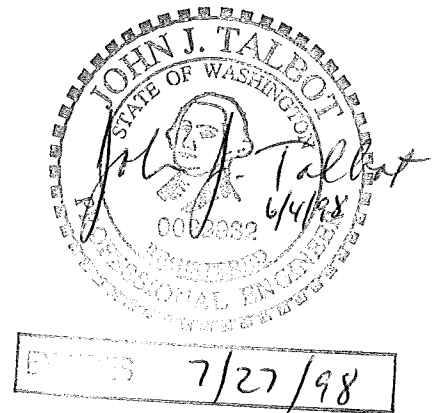 JOHN J. TALBOT
STATE OF WASHINGTON
John J. Talbot
6/4/98
REGISTERED
PROFESSIONAL ENGINEER
EXPIRES 7/27/98